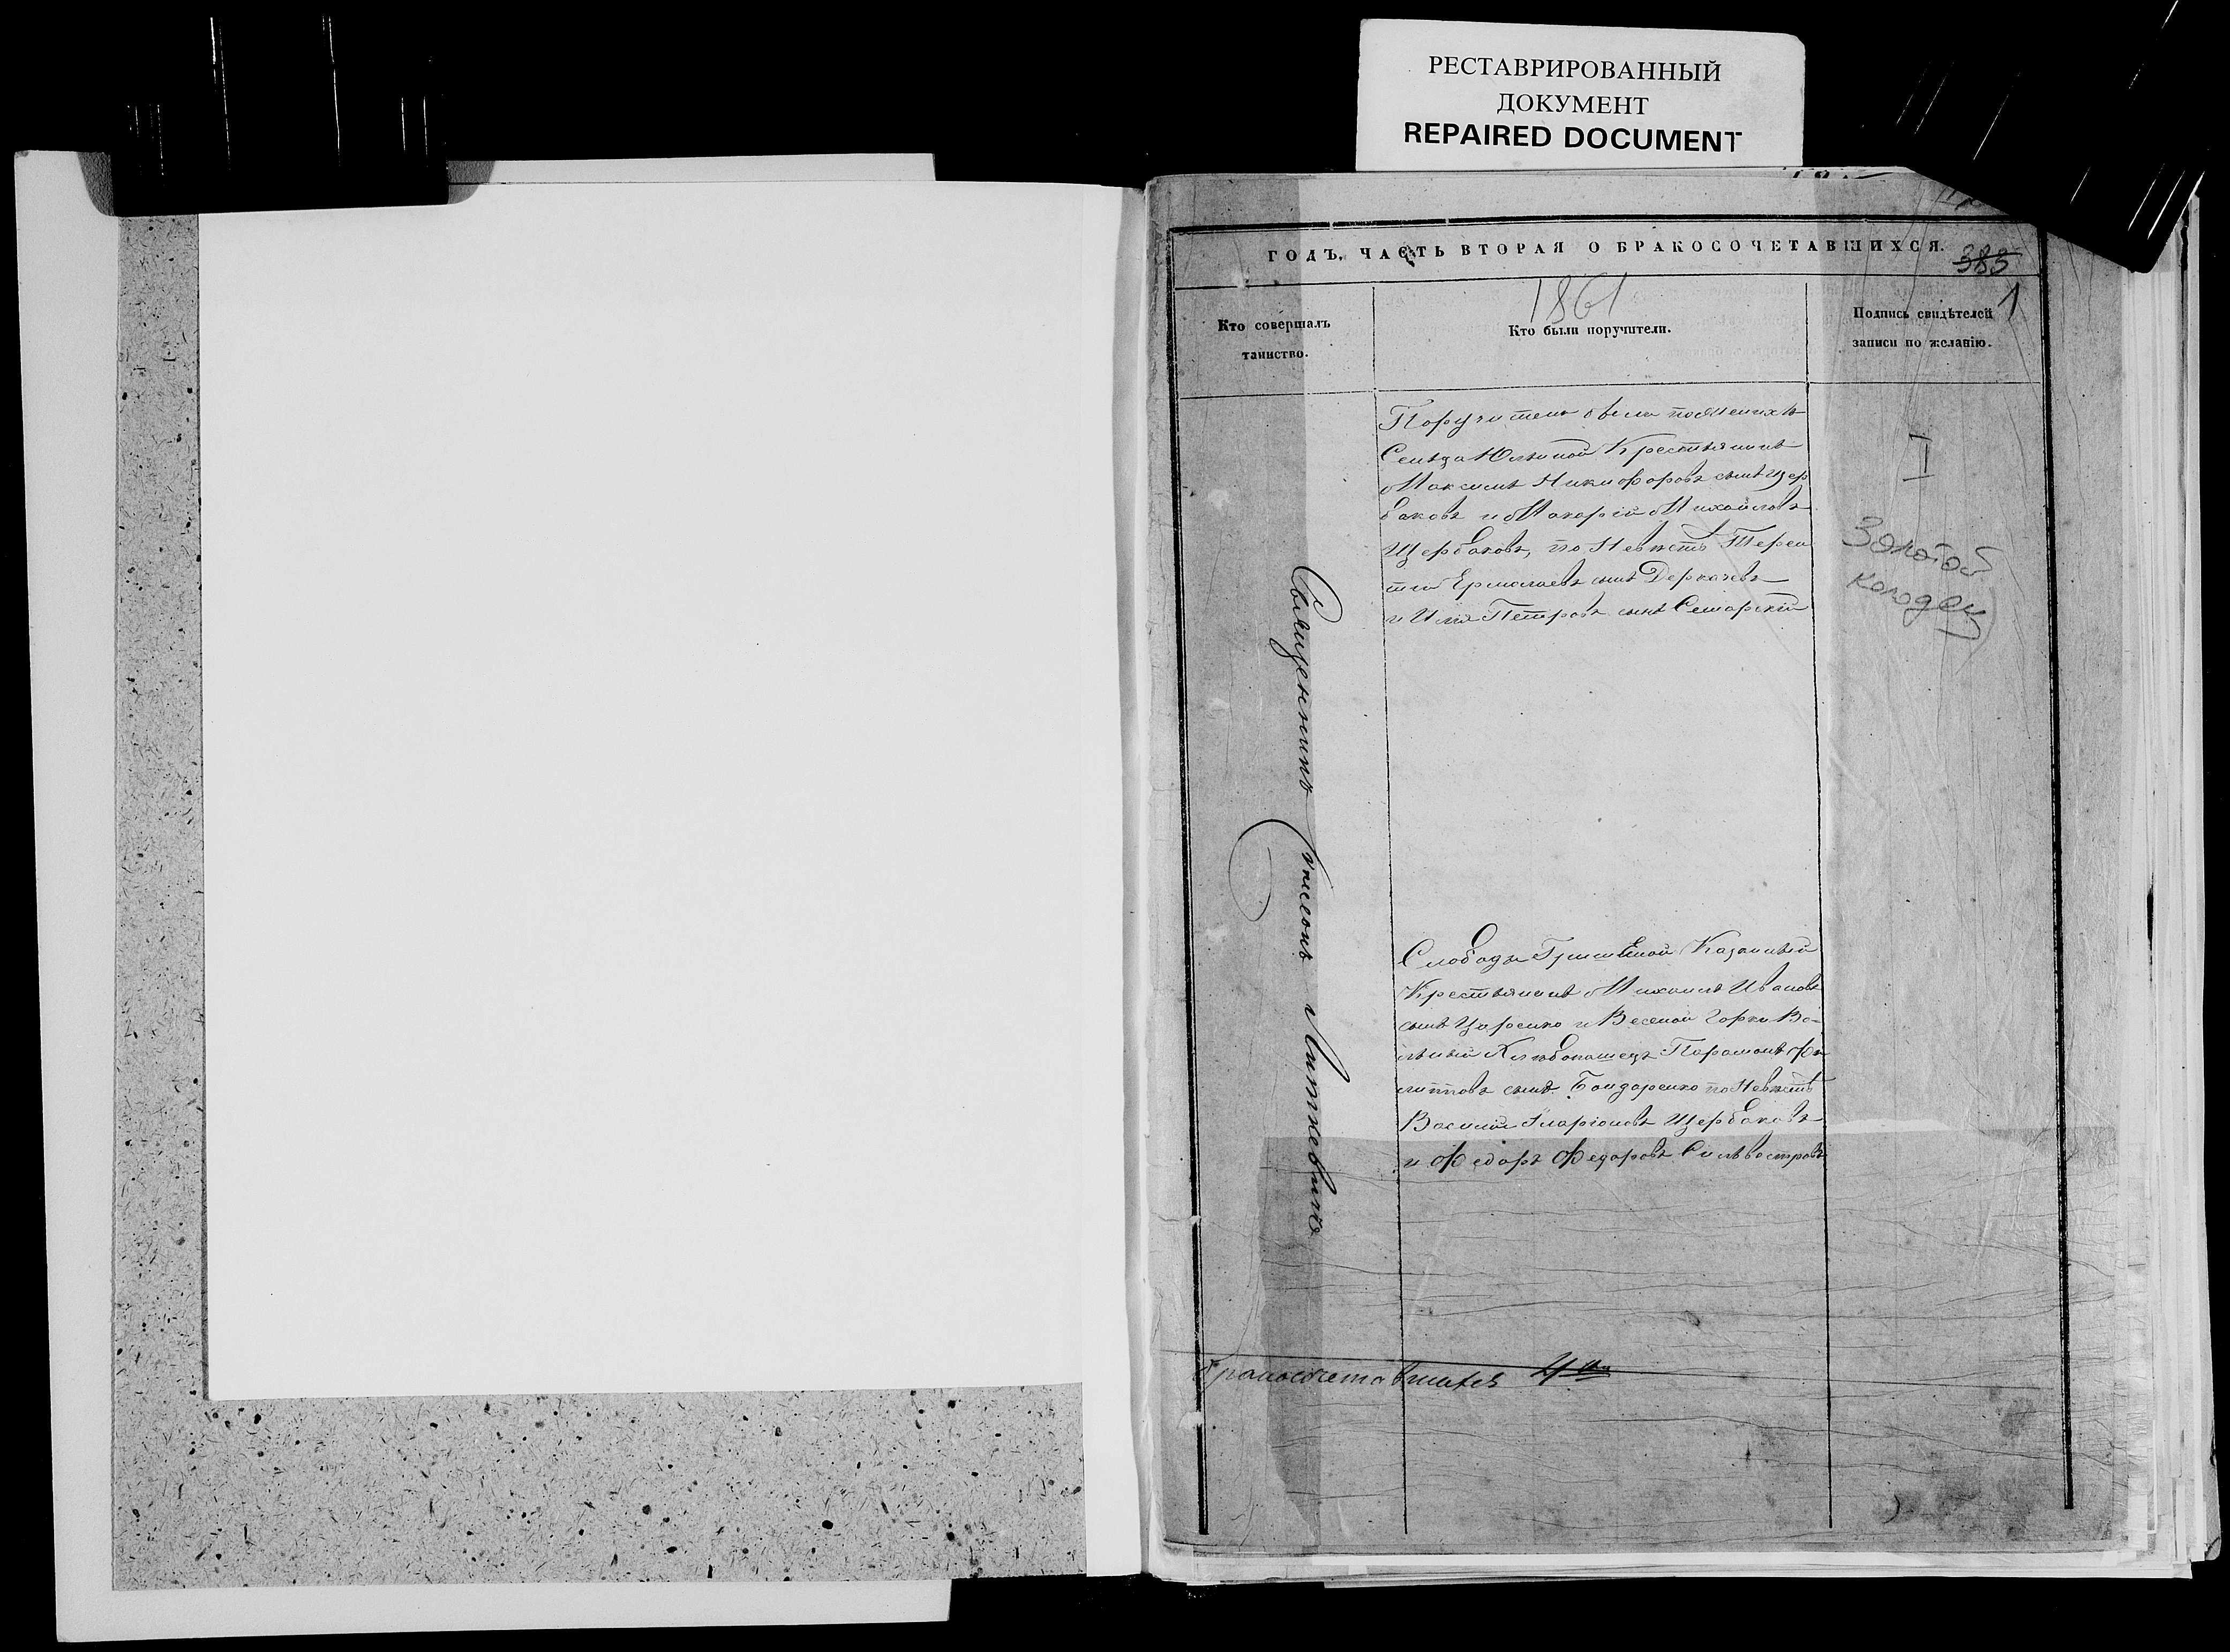 РЕСТАВРИРОВАННЫЙ
ДОКУМЕНТ
REPAIRED DOCUMENT
ГОДЪ, ЧАСТЬ ВТОРАЯ О БРАКОСОЧЕТАВШИХСЯ.
385
1861
1
Кто совершалъ
таинство.
Кто были поручители.
Подпись свидѣтелей
записи по желанію.
Поручители были по Женихѣ
Крестьянинъ
Максимъ Никифоровъ сынъ Щер
баковъ и Макарій Михайловъ
Щербаковъ, по Невѣстѣ Терен
тій Ермолаевъ сынъ Деркачевъ
и Илія Петровъ сынъ
I
Золотой
колодец
Священникъ Симеонъ
Слободы Гришиной Казенный
Крестьянинъ Михаилъ Ивановъ
сынъ Царенко и Веселой Горки Во-
льный Хлѣбопашецъ Парамонъ Фи
липповъ сынъ Бондаренко по Невѣстѣ
Василій Иларіоновъ Щербаковъ
и Федоръ Федоровъ Сильвестровъ
бракосочетавшихся 4